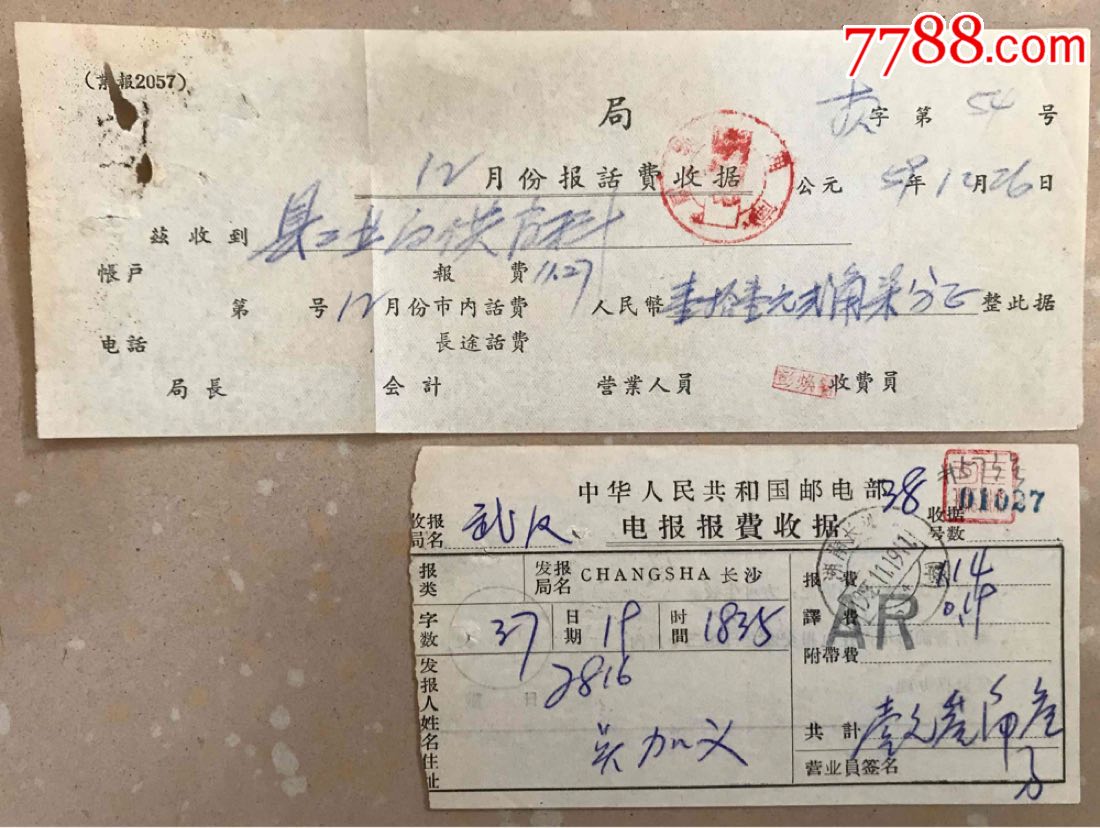 7788.com
(京報2057)
局
字第 54 号
12月份报話費收据
公元 年12月26日
茲收到 县工业局供
帳戶 報費 11.27
第 号 12月份市内話費 人民幣 壹拾壹元弍角柒分正 整此据
电話 長途話費
局長 会計 营業人員 收費員
中华人民共和国邮电部
38
收据号数 01027
收报局名 武汉
电报报費收据
报类
发报局名 CHANGSHA 长沙
报費 1.14
字数 37 日期 19 时間 1835
譯費 0.19
AR
附帶費
发报人姓名住址
2816
吴加义
共計 壹元叁角叁分
营业員签名